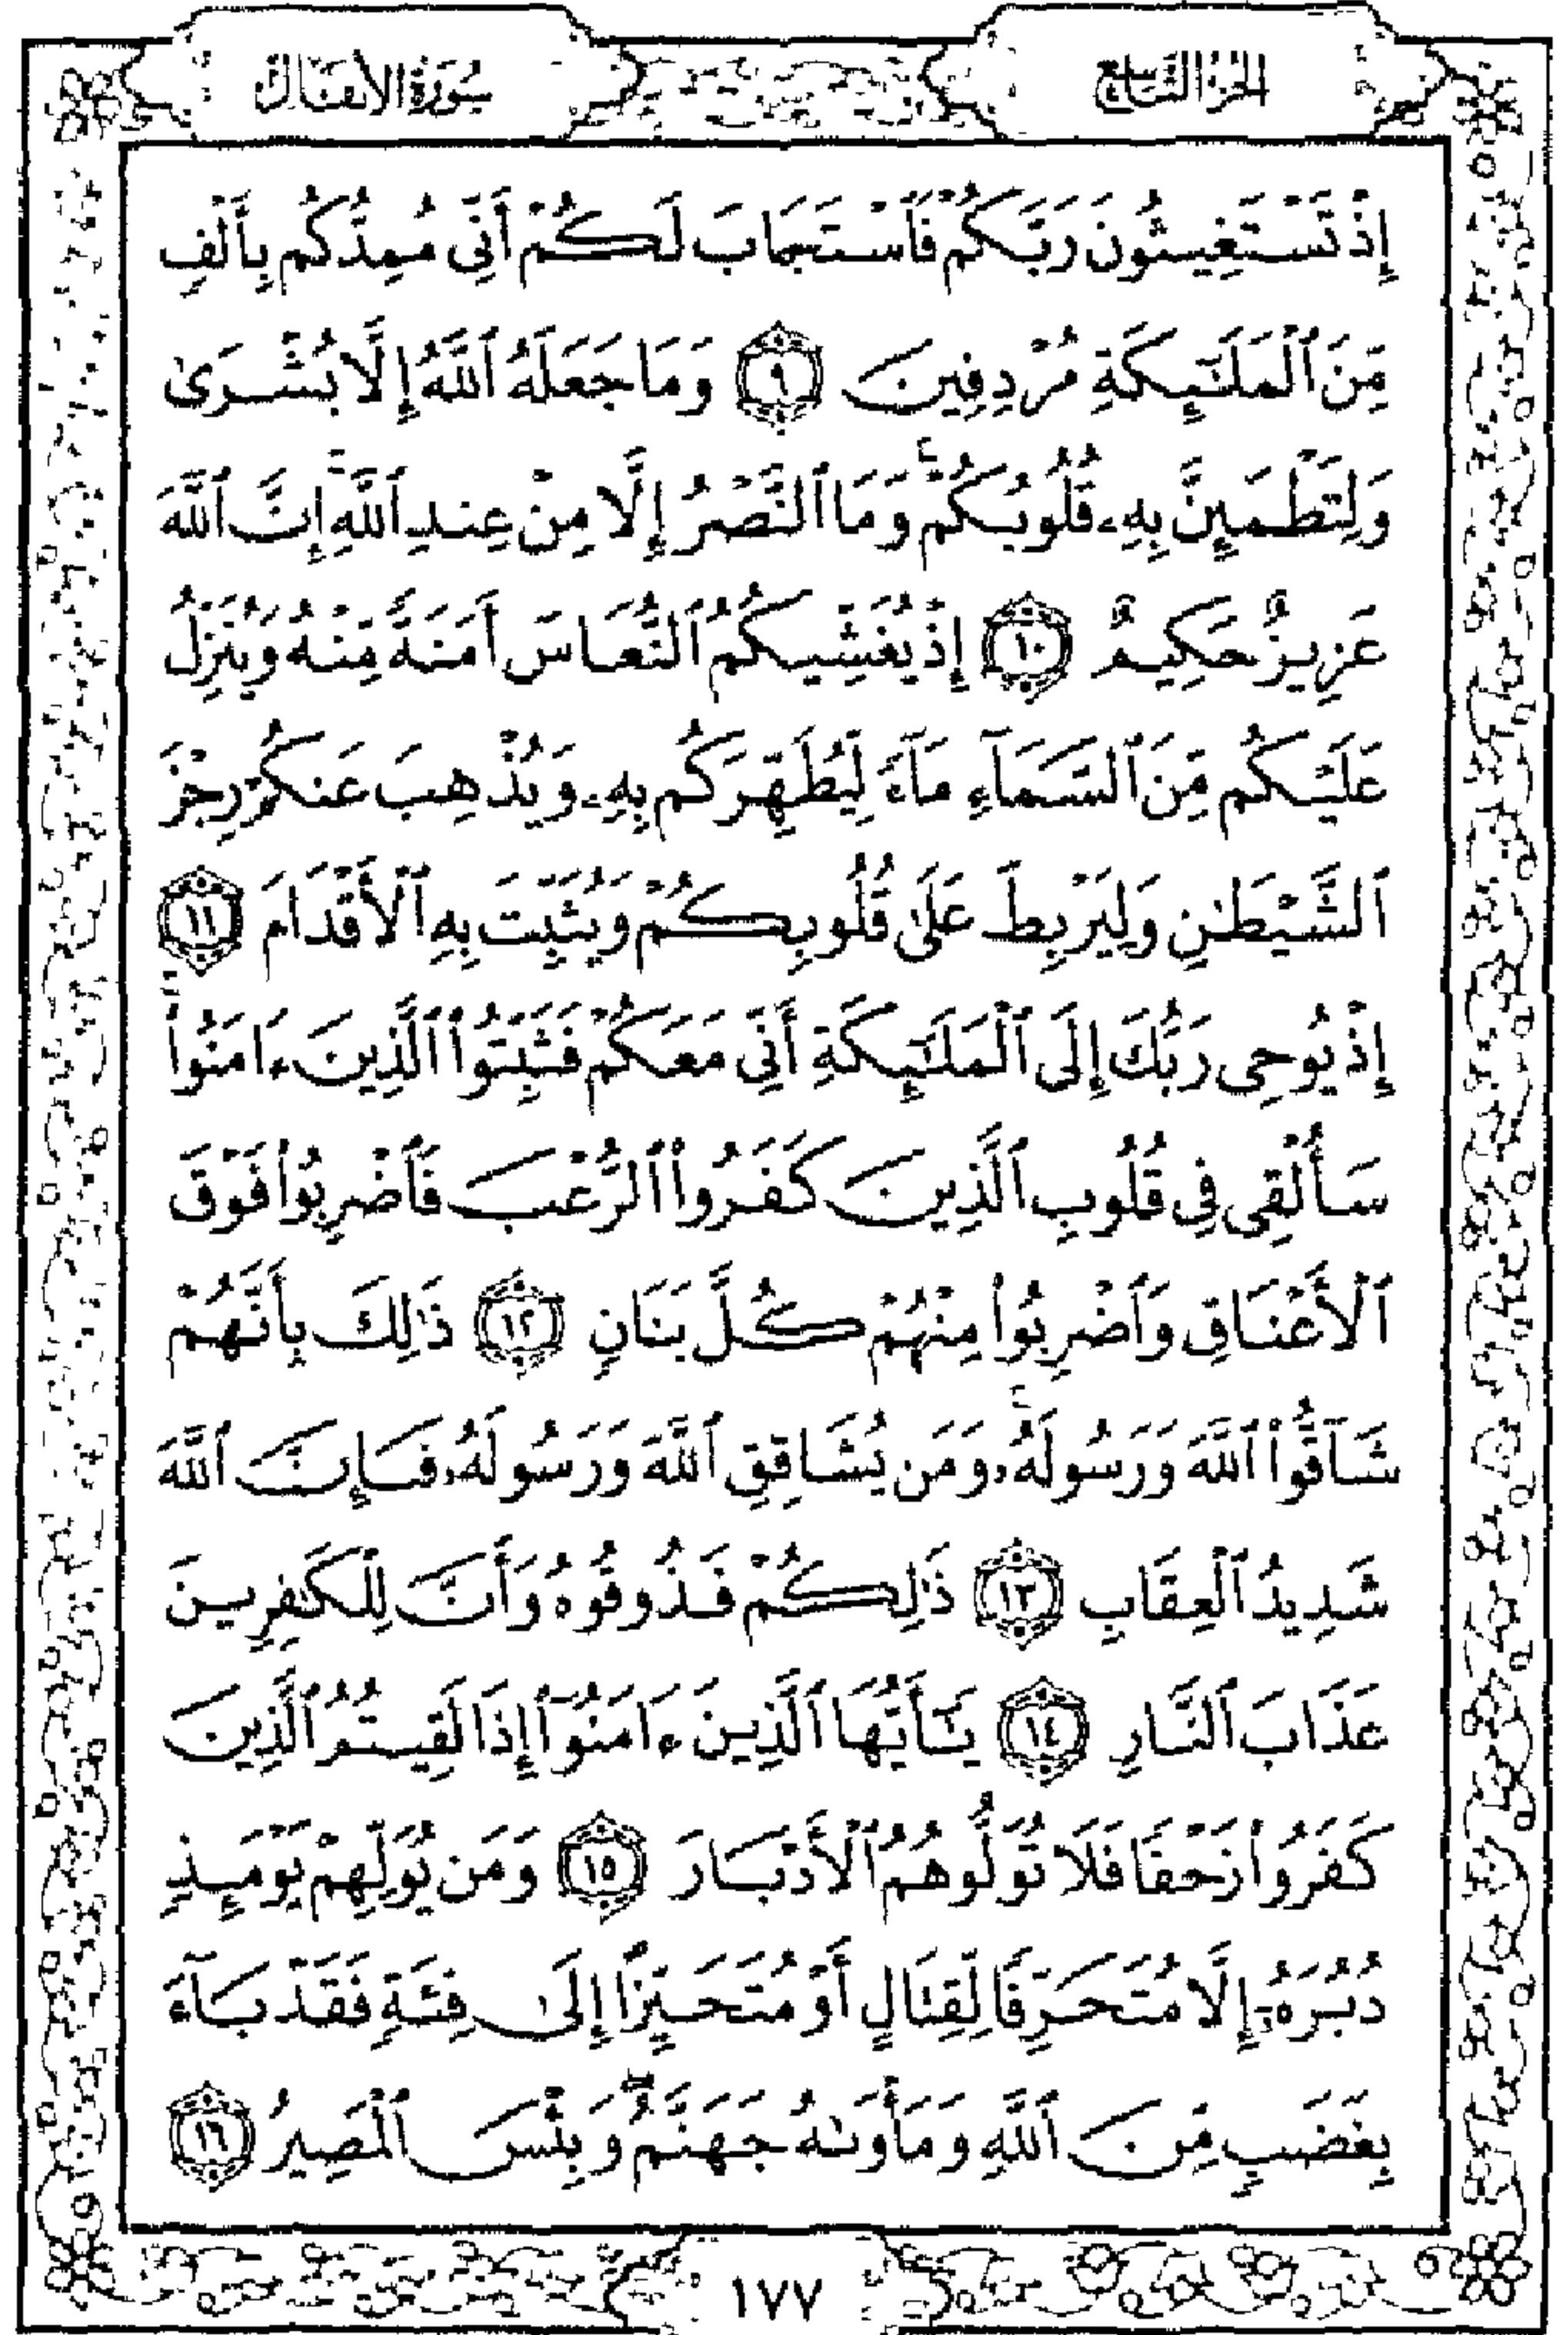 الجزء التاسع
سورة الأنفال
إِذْ تَسْتَغِيثُونَ رَبَّكُمْ فَٱسْتَجَابَ لَكُمْ أَنِّى مُمِدُّكُم بِأَلْفٍ
مِّنَ ٱلْمَلَـٰٓئِكَةِ مُرْدِفِينَ ٩ وَمَا جَعَلَهُ ٱللَّهُ إِلَّا بُشْرَىٰ
وَلِتَطْمَئِنَّ بِهِۦ قُلُوبُكُمْ ۚ وَمَا ٱلنَّصْرُ إِلَّا مِنْ عِندِ ٱللَّهِ ۚ إِنَّ ٱللَّهَ
عَزِيزٌ حَكِيمٌ ١٠ إِذْ يُغَشِّيكُمُ ٱلنُّعَاسَ أَمَنَةً مِّنْهُ وَيُنَزِّلُ
عَلَيْكُم مِّنَ ٱلسَّمَآءِ مَآءً لِّيُطَهِّرَكُم بِهِۦ وَيُذْهِبَ عَنكُمْ رِجْزَ
ٱلشَّيْطَـٰنِ وَلِيَرْبِطَ عَلَىٰ قُلُوبِكُمْ وَيُثَبِّتَ بِهِ ٱلْأَقْدَامَ ١١
إِذْ يُوحِى رَبُّكَ إِلَى ٱلْمَلَـٰٓئِكَةِ أَنِّى مَعَكُمْ فَثَبِّتُوا۟ ٱلَّذِينَ ءَامَنُوا۟ ۚ
سَأُلْقِى فِى قُلُوبِ ٱلَّذِينَ كَفَرُوا۟ ٱلرُّعْبَ فَٱضْرِبُوا۟ فَوْقَ
ٱلْأَعْنَاقِ وَٱضْرِبُوا۟ مِنْهُمْ كُلَّ بَنَانٍ ١٢ ذَٰلِكَ بِأَنَّهُمْ
شَآقُّوا۟ ٱللَّهَ وَرَسُولَهُۥ ۚ وَمَن يُشَاقِقِ ٱللَّهَ وَرَسُولَهُۥ فَإِنَّ ٱللَّهَ
شَدِيدُ ٱلْعِقَابِ ١٣ ذَٰلِكُمْ فَذُوقُوهُ وَأَنَّ لِلْكَـٰفِرِينَ
عَذَابَ ٱلنَّارِ ١٤ يَـٰٓأَيُّهَا ٱلَّذِينَ ءَامَنُوٓا۟ إِذَا لَقِيتُمُ ٱلَّذِينَ
كَفَرُوا۟ زَحْفًا فَلَا تُوَلُّوهُمُ ٱلْأَدْبَارَ ١٥ وَمَن يُوَلِّهِمْ يَوْمَئِذٍ
دُبُرَهُۥٓ إِلَّا مُتَحَرِّفًا لِّقِتَالٍ أَوْ مُتَحَيِّزًا إِلَىٰ فِئَةٍ فَقَدْ بَآءَ
بِغَضَبٍ مِّنَ ٱللَّهِ وَمَأْوَىٰهُ جَهَنَّمُ ۖ وَبِئْسَ ٱلْمَصِيرُ ١٦
١٧٧